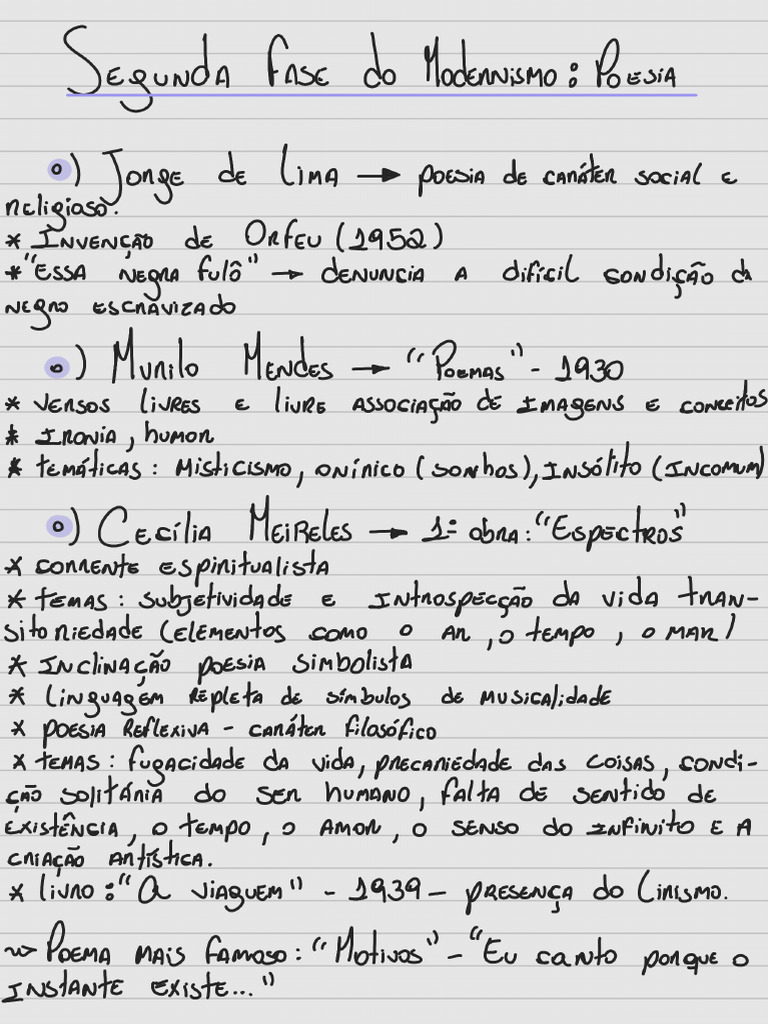 Segunda Fase do Modernismo: Poesia
o) Jorge de Lima → poesia de caráter social e
religioso.
* Invenção de Orfeu (1952)
* "Essa negra fulô" → denuncia a difícil condição do
negro escravizado
o) Murilo Mendes → "Poemas" - 1930
* versos livres e livre associação de imagens e conceitos
* Ironia, humor
* temáticas: misticismo, onírico (sonhos), insólito (incomum)
o) Cecília Meireles → 1ª obra: "Espectros"
* corrente espiritualista
* temas: subjetividade e introspecção da vida tran-
sitoriedade (elementos como o ar, o tempo, o mar)
* Inclinação poesia simbolista
* linguagem repleta de símbolos de musicalidade
* poesia reflexiva - caráter filosófico
* temas: fugacidade da vida, precariedade das coisas, condi-
ção solitária do ser humano, falta de sentido de
existência, o tempo, o amor, o senso do infinito e a
criação artística.
* livro: "A viaguem" - 1939 - presença do Lirismo.
~> Poema mais famoso: "Motivos" - "Eu canto porque o
instante existe..."